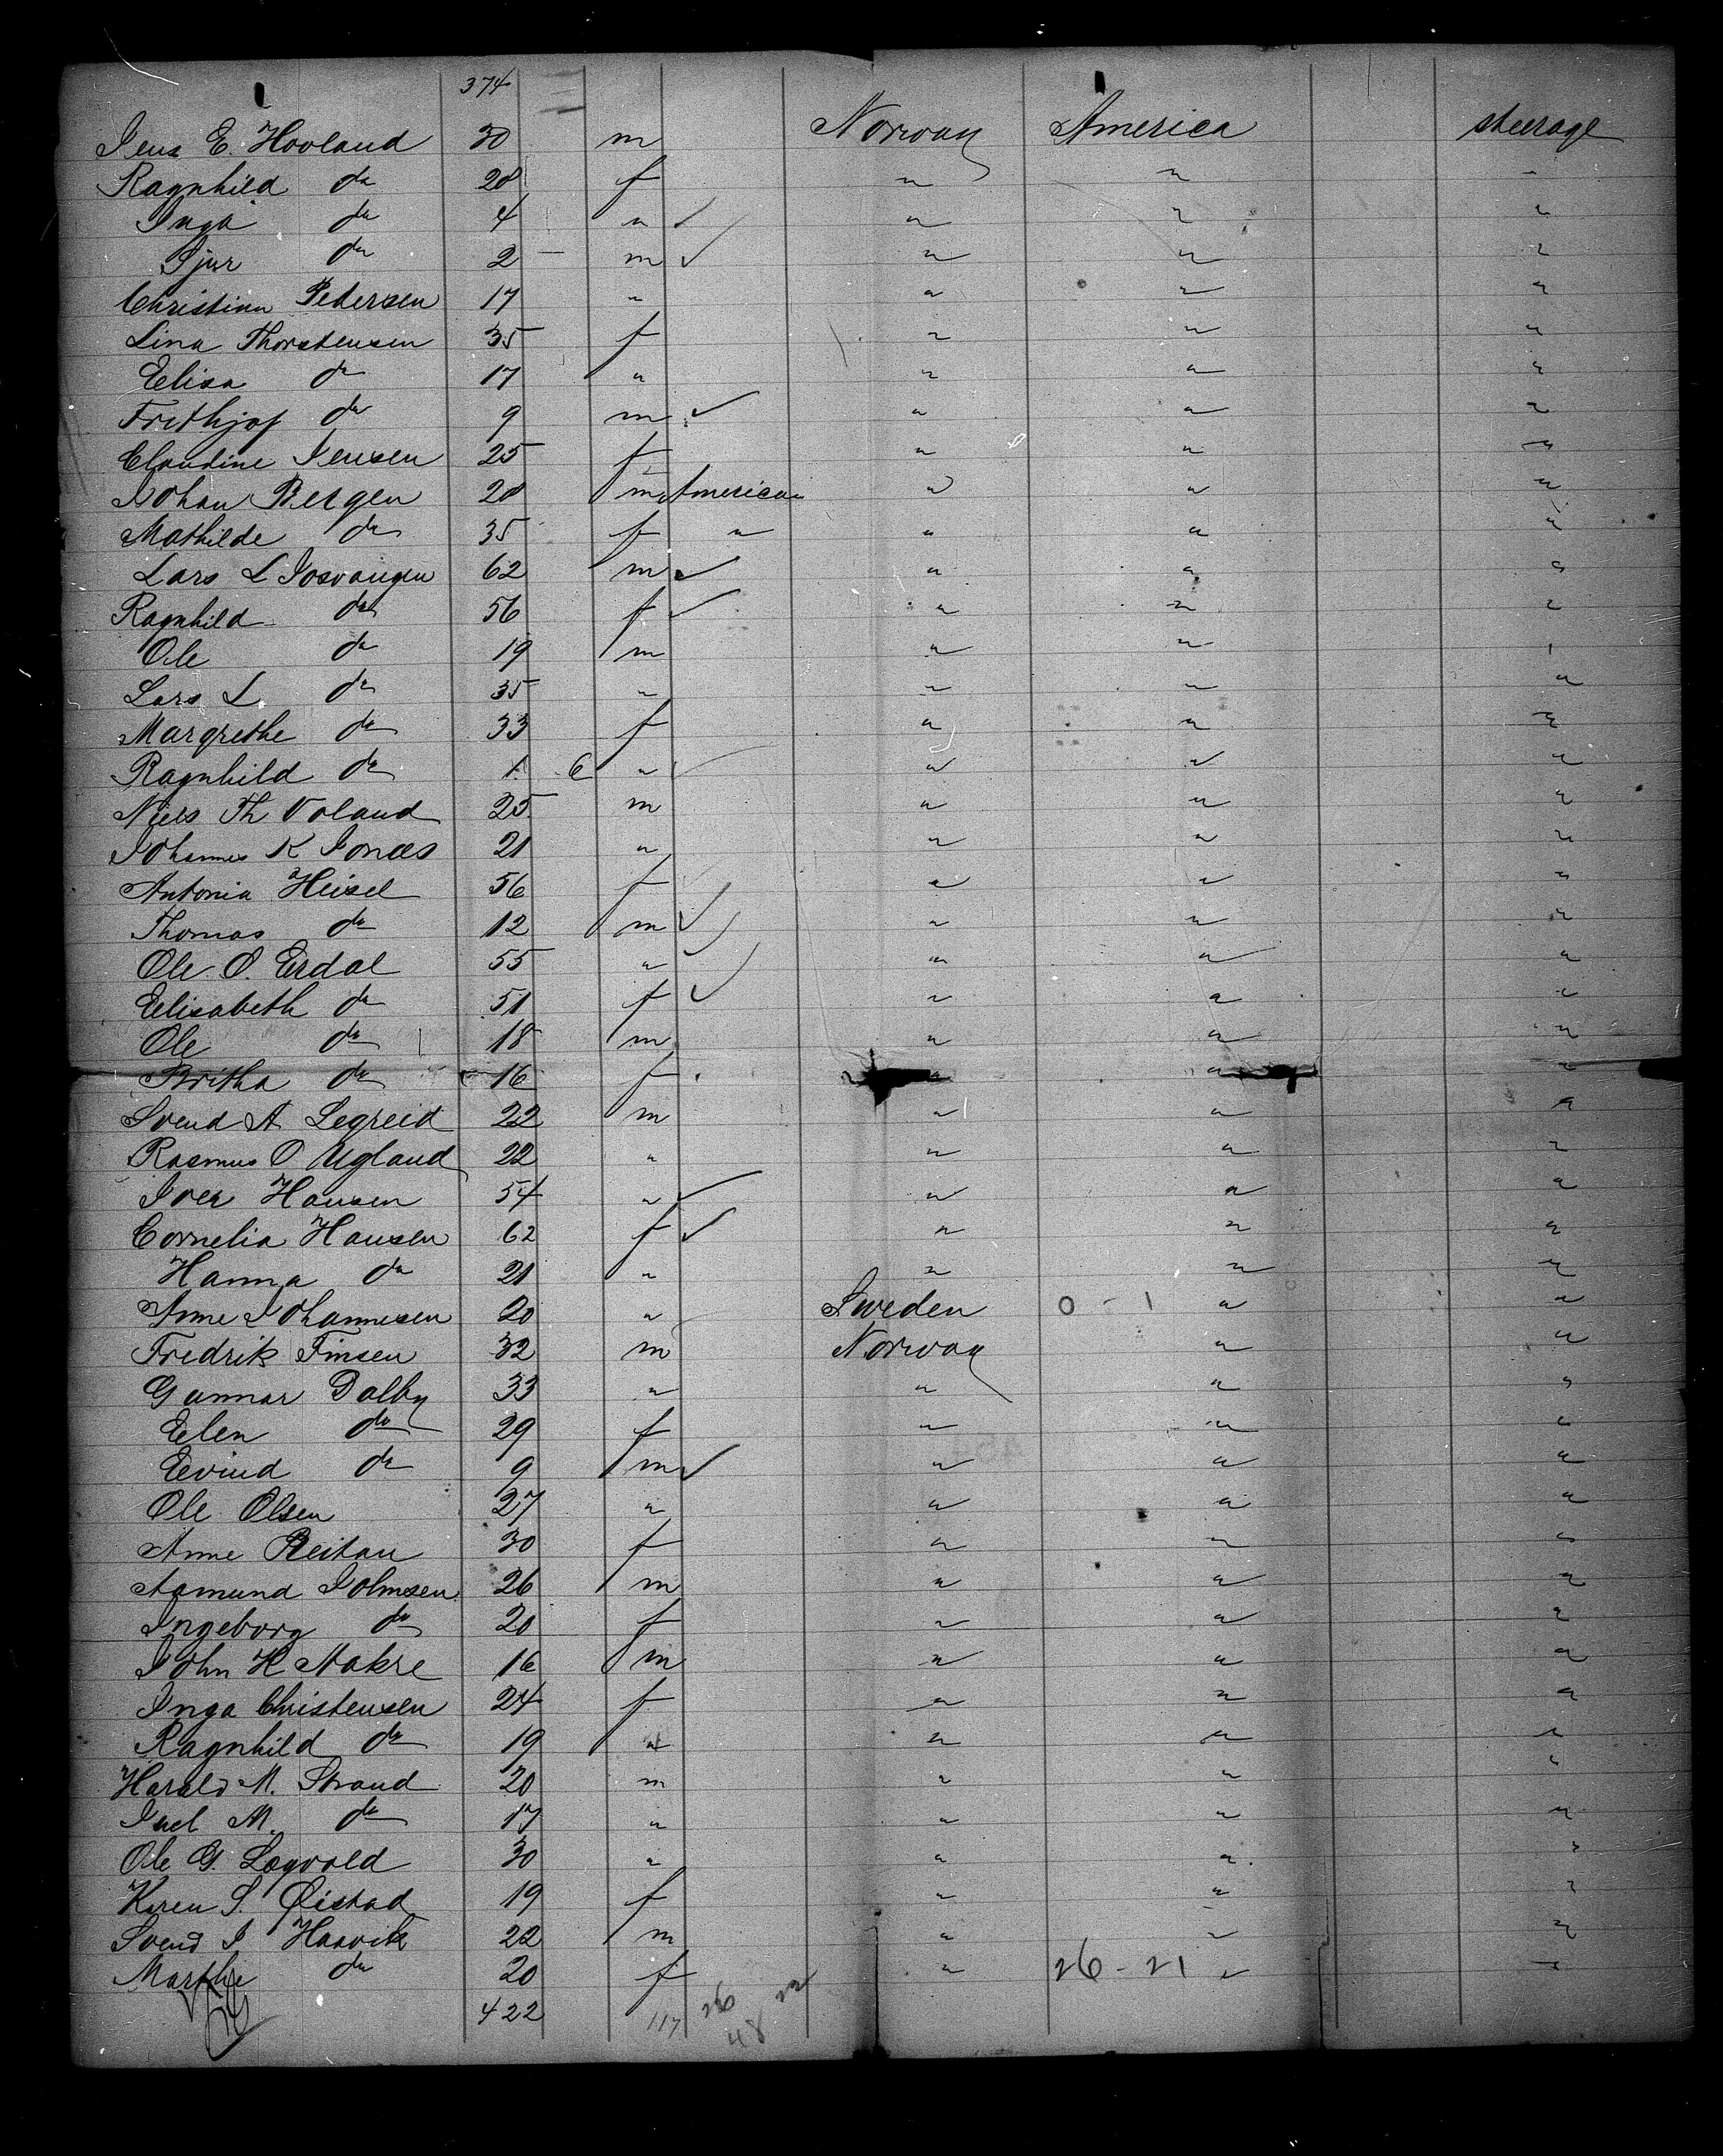 374
Jens E. Hovland 30 m Norway America steerage
Ragnhild do 28 f " " "
Inga do 4 " ✓ " " "
Sjur do 2 m ✓ " " "
Christian Pedersen 17 " " " "
Lina Thorstensen 35 f " " "
Elisa do 17 " " " "
Frithjof do 9 m ✓ " " "
Claudine Jensen 25 f " " "
Johan Bergen 28 m America " " "
Mathilde do 35 f " " " "
Lars L Josvangen 62 m ✓ " " "
Ragnhild do 56 f ✓ " " "
Ole do 19 m " " "
Lars L do 35 " " " "
Margrethe do 33 f " " "
Ragnhild do 1 6 " ✓ " " "
Niels Th Voland 25 m " " "
Johannes K Jonæs 21 " " " "
Antonia Heisel 56 f " " "
Thomas do 12 m ✓ " " "
Ole O. Erdal 55 " ✓ " " "
Elisabeth do 51 f ✓ " " "
Ole do 18 m " " "
Britha do 16 f " " "
Svend A Legreid 22 m " " "
Rasmus O Ugland 22 " " " "
Iver Hansen 54 " ✓ " " "
Cornelia Hansen 62 f ✓ " " "
Hanna do 21 " " " "
Anne Johannesen 20 " Sweden 0 - 1 " "
Fredrik Finsen 32 m Norway " "
Gunnar Dalby 33 " " " "
Elen do 29 f " " "
Eivind do 9 m ✓ " " "
Ole Olsen 27 " " " "
Anne Reitan 30 f " " "
Aamund Johnsen 26 m " " "
Ingeborg do 20 f " " "
John H Aakre 16 m " " "
Inga Christensen 24 f " " "
Ragnhild do 19 " " " "
Harald M. Strand 20 m " " "
M. do 17 " " " "
Ole G. Løgvold 30 " " " "
Karen S. Øistad 19 f " " "
Svend J Haavik 22 m " " "
Marthe do 20 f " 26 - 21 " "
422 117 26 22
48